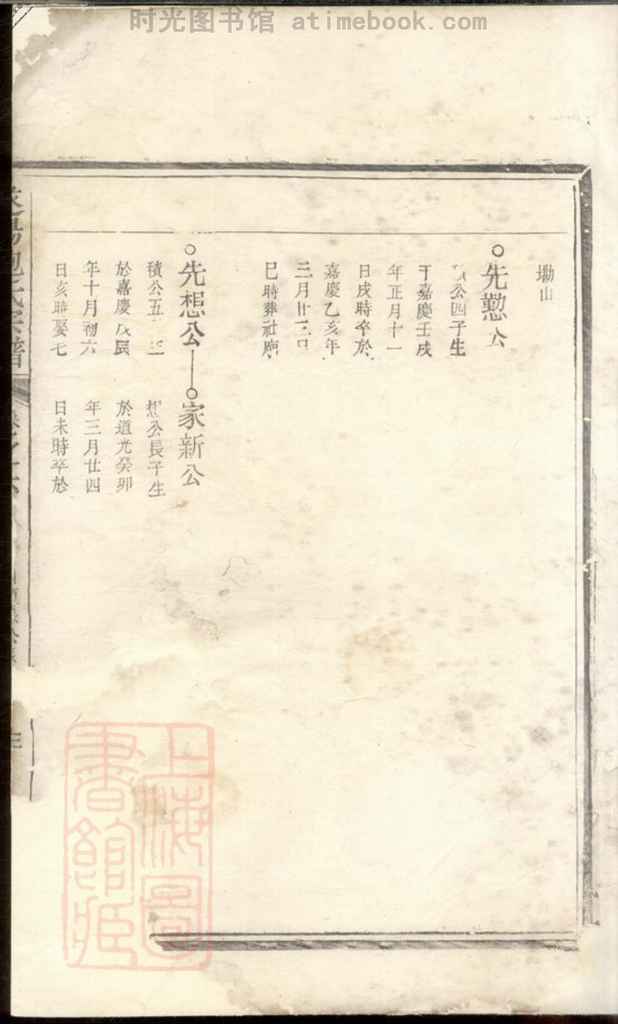 时光图书馆 atimebook.com
坳山
先懃公
公四子生
于嘉慶壬戌
年正月十一
日戌時卒於
嘉慶乙亥年
三月廿三日
巳時葬社廟
先想公
積公五子生
於嘉慶戊辰
年十月初六
日亥時娶七
家新公
想公長子生
於道光癸卯
年三月廿四
日未時卒於
氏宗譜
上海圖
書館藏